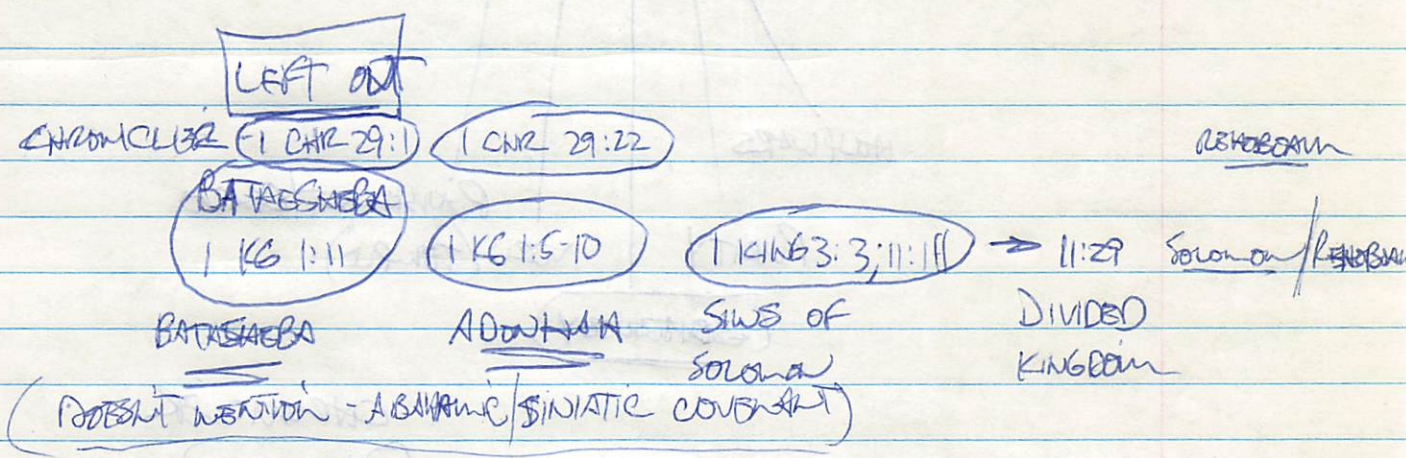 LEFT OUT
CHRONICLER 1 CHR 29:1 1 CHR 29:22 REHOBOAM
BATHESHEBA
1 KG 1:11 1 KG 1:5-10 1 KING 3:3; 11:1ff → 11:29 SOLOMON / REHOBOAM
BATHSHEBA ADONIJAH SINS OF DIVIDED
SOLOMON KINGDOM
(DOESN'T MENTION - ABAHAMIC/SINIATIC COVENANT)